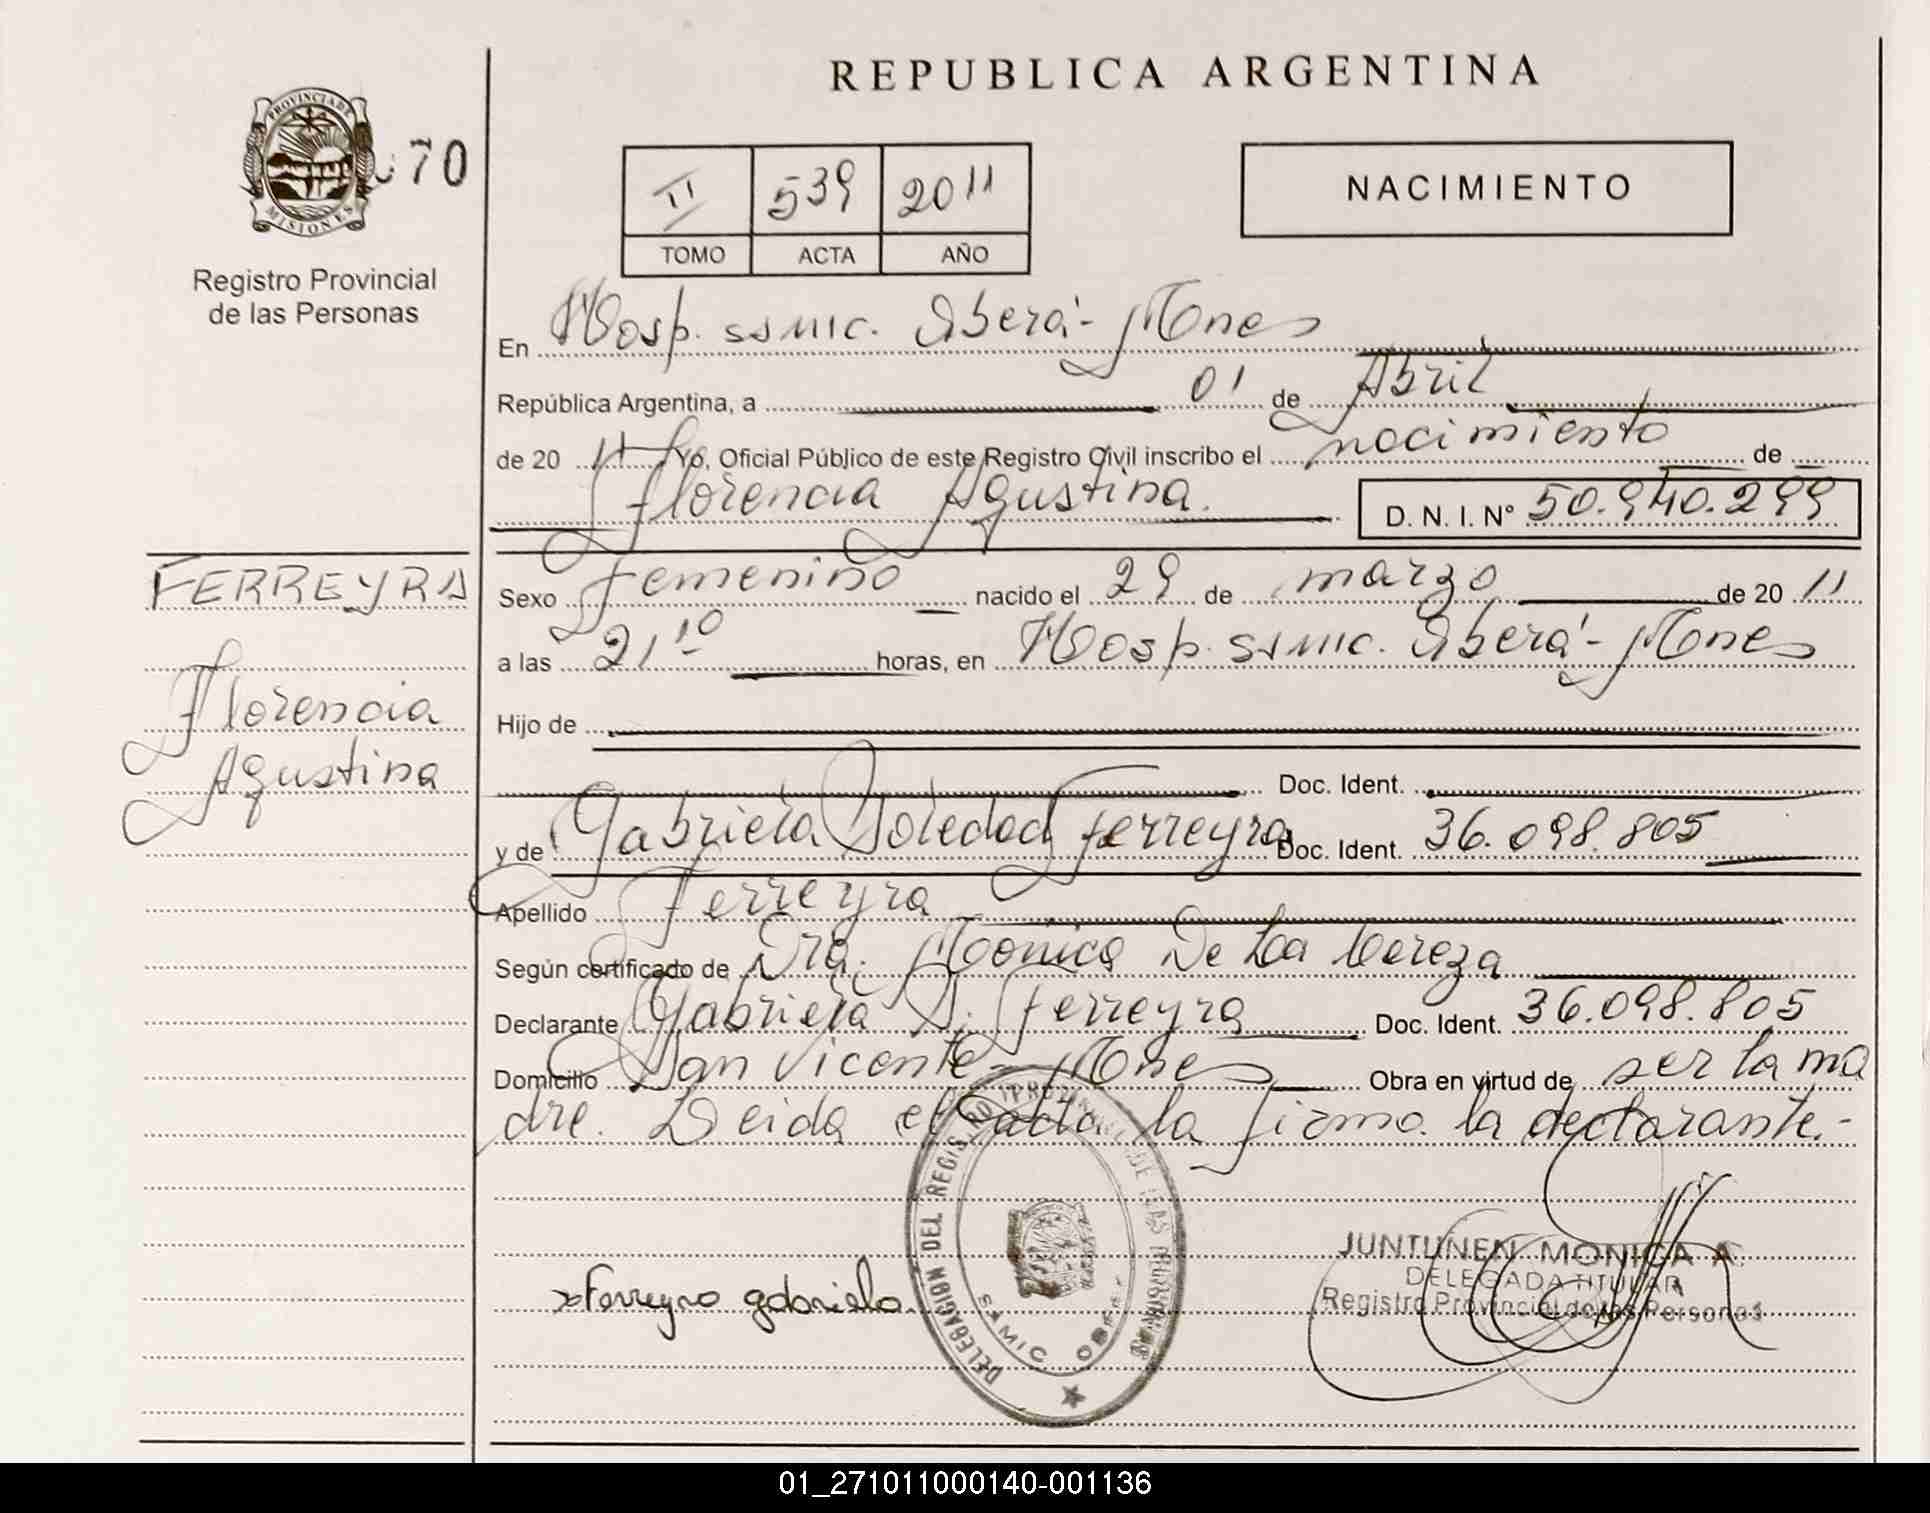 REPUBLICA ARGENTINA
PROVINCIA DE
MISIONES
70
Registro Provincial
de las Personas
II 539 2011
TOMO ACTA AÑO
NACIMIENTO
En Hosp. ssmic. Oberá - Mnes
República Argentina, a 01 de Abril
de 20 11 Yo, Oficial Público de este Registro Civil inscribo el nacimiento de
Florencia Agustina. D. N. I. Nº 50.940.299
FERREYRA
Florencia
Agustina
Sexo femenino nacido el 29 de marzo de 20 11
a las 21 10 horas, en Hosp. ssmic. Oberá - Mnes
Hijo de
Doc. Ident.
y de Gabriela Soledad Ferreyra Doc. Ident. 36.098.805
Apellido Ferreyra
Según certificado de Dra. Monica De La
Declarante Gabriela S. Ferreyra Doc. Ident. 36.098.805
Domicilio San Vicente - Mnes Obra en virtud de ser la ma
dre. Leida el acta la firma la declarante.-
Ferreyra gabriela
DELEGACION DEL REGISTRO PROVINCIAL DE LAS PERSONAS
SAMIC
JUNTUNEN MONICA A.
DELEGADA TITULAR
Registro Provincial de las Personas
01_271011000140-001136